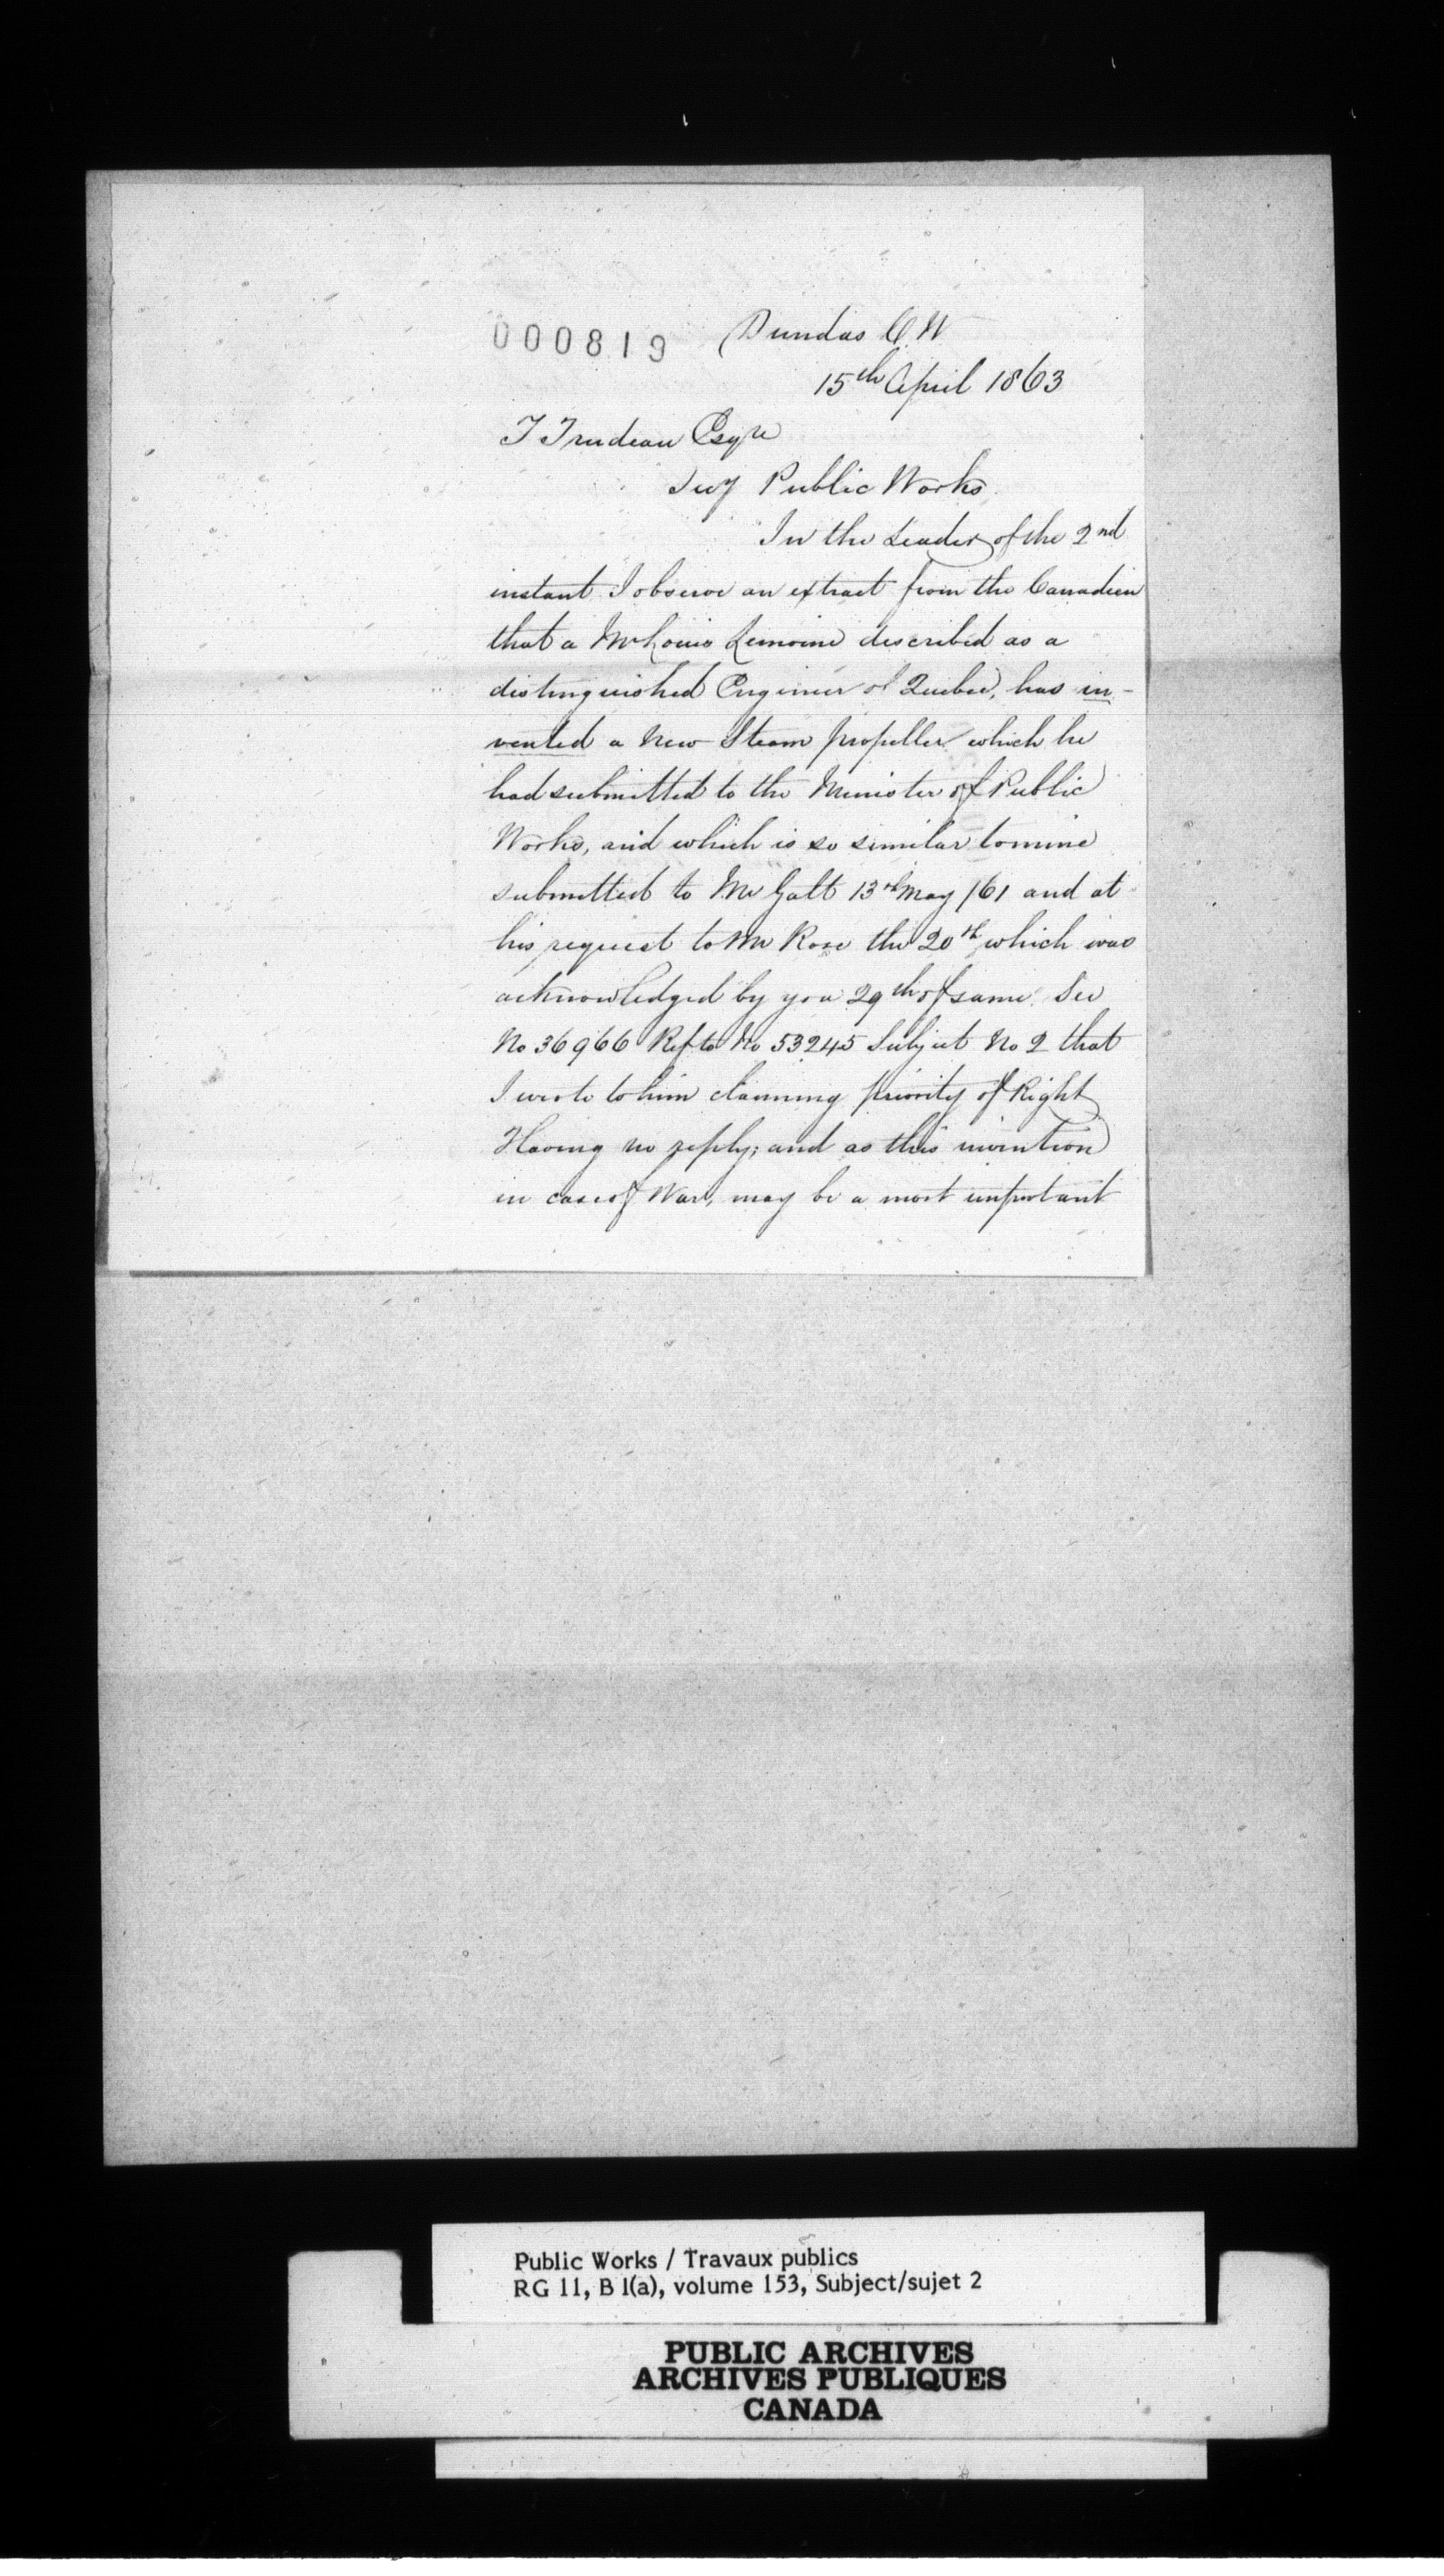 000819
Dundas C.W
15th April 1863
T Trudeau Esqre
Secy Public Works
In the Leader of the 2nd
instant I observe an extract from the Canadien
that a Mr Louis Lemoine described as a
distinguished Engineer of Quebec, has in-
vented a New Steam propeller which he
had submitted to the Minister of Public
Works, and which is so similar to mine
submitted to Mr Galt 13th May /61 and at
his request to Mr Rose the 20th, which was
acknowledged by you 29th of same. See
No 36966 Ref to No 53245 Subject No 2 that
I wrote to him claiming priority of Right
Having no reply; and as this invention
in case of War, may be a most important
Public Works / Travaux publics
RG 11, B 1(a), volume 153, Subject/sujet 2
PUBLIC ARCHIVES
ARCHIVES PUBLIQUES
CANADA